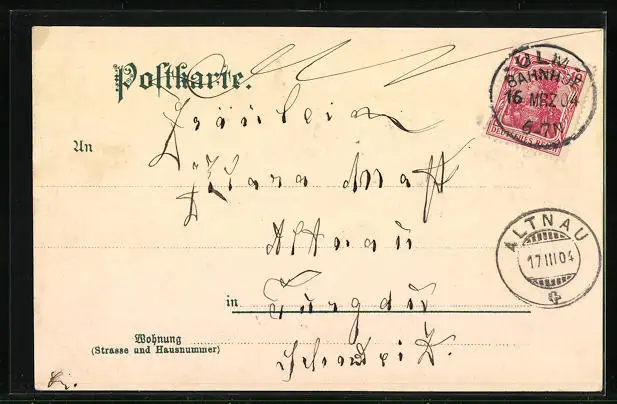 Postkarte.
ULM
BAHNHOF
16 MRZ 04
6-7N
DEUTSCHES REICH
Fräulein
An
Klara
Altnau
ALTNAU
17 III 04
in
Turgau
Schweiz.
Wohnung
(Strasse und Hausnummer)